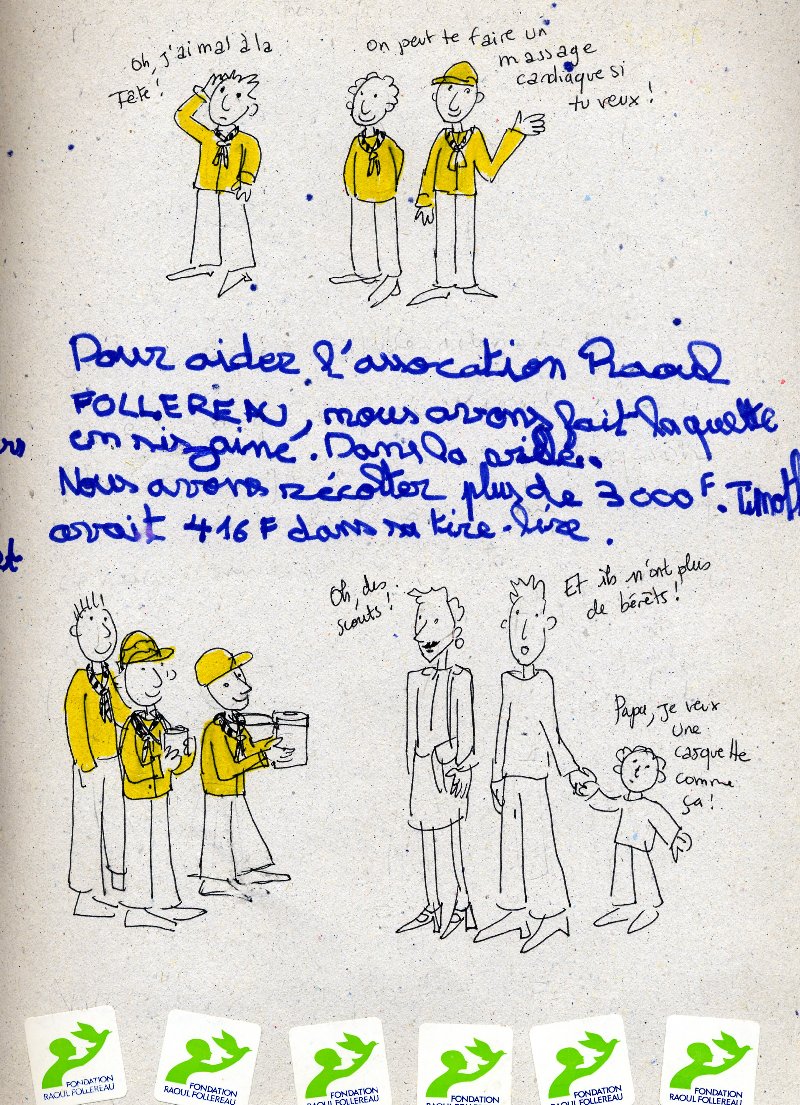 Oh, j'ai mal à la
Tête !
On peut te faire un
massage
cardiaque si
tu veux !
Pour aider l'assocation Raoul
FOLLEREAU, nous avons fait la quette
en sizaine. Dans la ville.
Nous avons récolter plus de 3000F. Timoth
avait 416 F dans sa tire-lire.
Oh, des
scouts !
Et ils n'ont plus
de bérêts !
Papa, je veux
une
casquette
comme
ça !
FONDATION
RAOUL FOLLEREAU
FONDATION
RAOUL FOLLEREAU
FONDATION
RAOUL FOLLEREAU
FONDATION
RAOUL FOLLEREAU
FONDATION
RAOUL FOLLEREAU
FONDATION
RAOUL FOLLEREAU